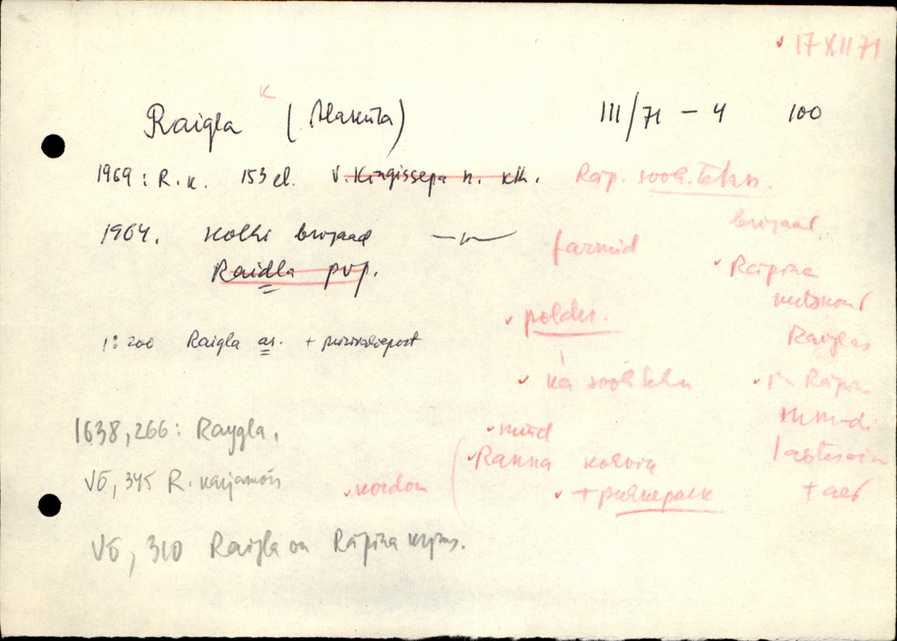 17 XII 71
Raigla k III/71 - 4 100
1969: R.k. 153 el. V. Kingissepa n. kh. Räp. sovh. tehn.
1964. Kolhi brigaad farmid brigaad
Raidla pvp. Räpina
polder. metskond
1:200 Raigla as. + piirivalvepost Raiglas
ka sovh tehn Räpina
1638, 266: Raygla. mm-di
nüüd
VÕ, 345 R. karjamõis kordon Ranna kolviq
+ puhkepark + aed
VÕ, 310 Raigla on Räpina